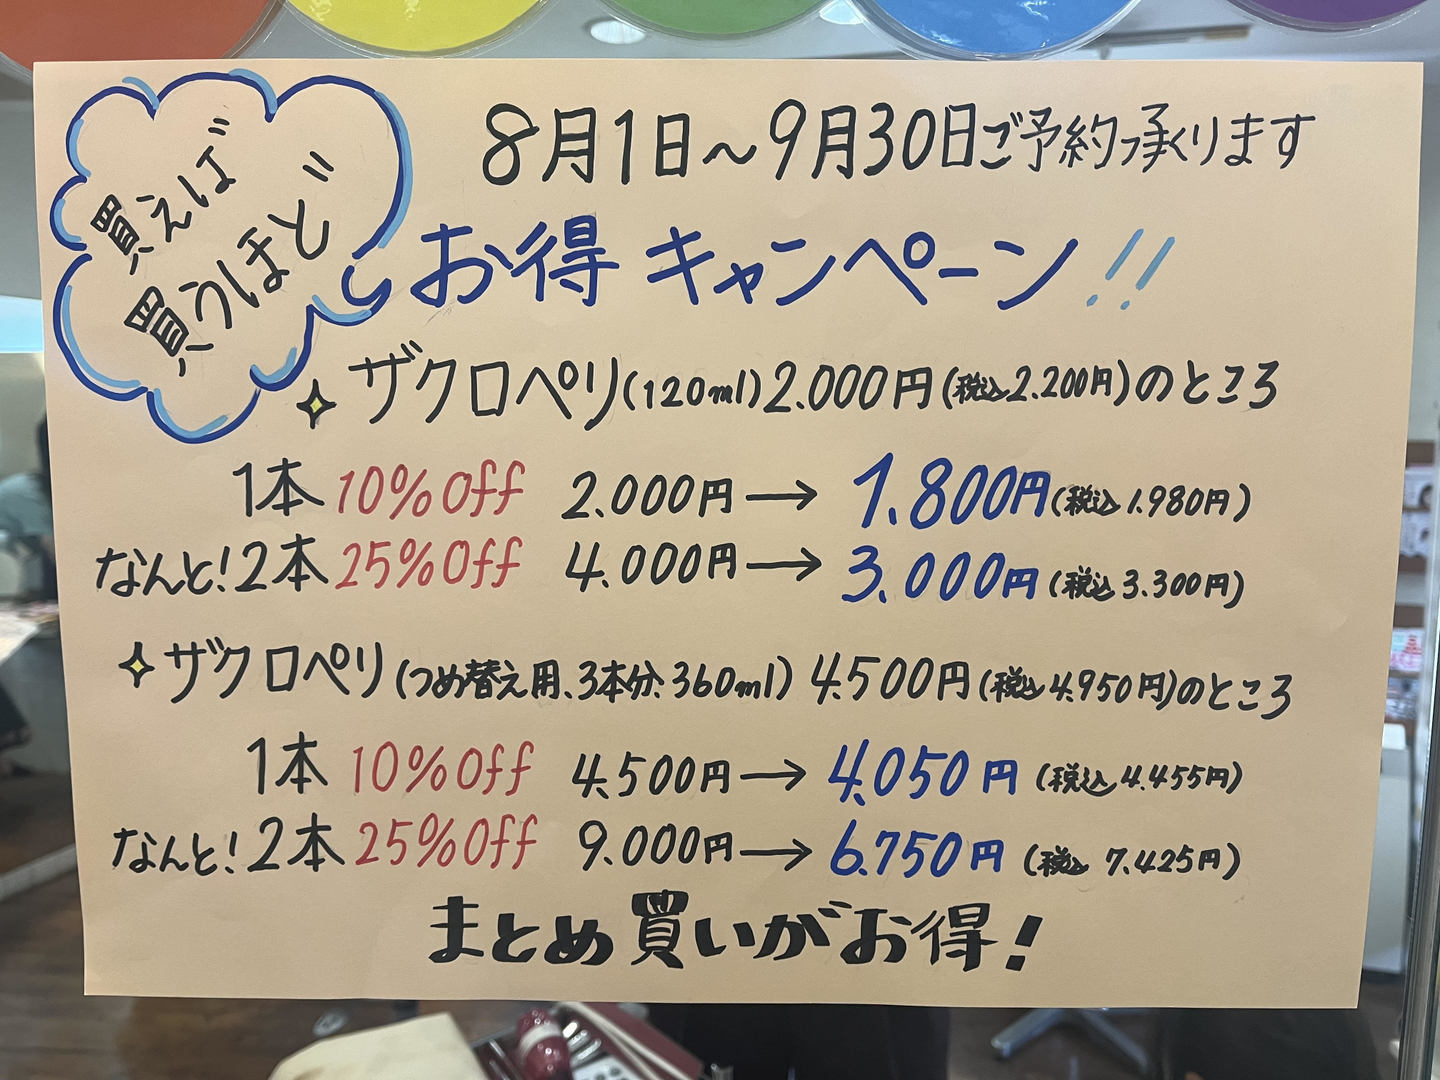 買えば
買うほど
8月1日〜9月30日ご予約承ります
お得キャンペーン!!
ザクロペリ(120ml)2.000円(税込2.200円)のところ
1本 10%Off 2.000円→1.800円(税込1.980円)
なんと!2本 25%Off 4.000円→3.000円(税込3.300円)
ザクロペリ(つめ替え用、3本分、360ml) 4.500円(税込4.950円)のところ
1本 10%Off 4.500円→4.050円(税込4.455円)
なんと!2本 25%Off 9.000円→6.750円(税込7.425円)
まとめ買いがお得!